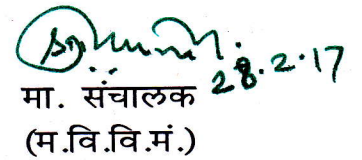 28.2.17
मा. संचालक
(म.वि.वि.मं.)